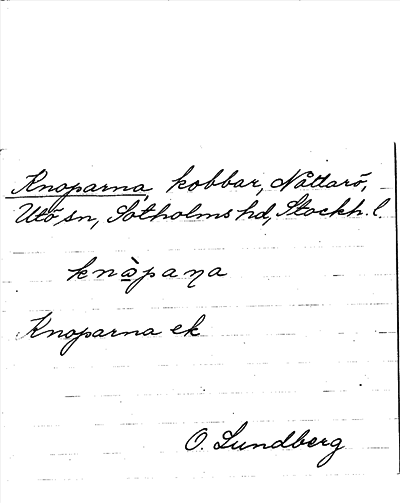 Knoparna, kobbar, Nåttarö,
Utö sn, Sotholms hd, Stockh. l.
knàpaꞃa
Knoparna ek
O. Lundberg